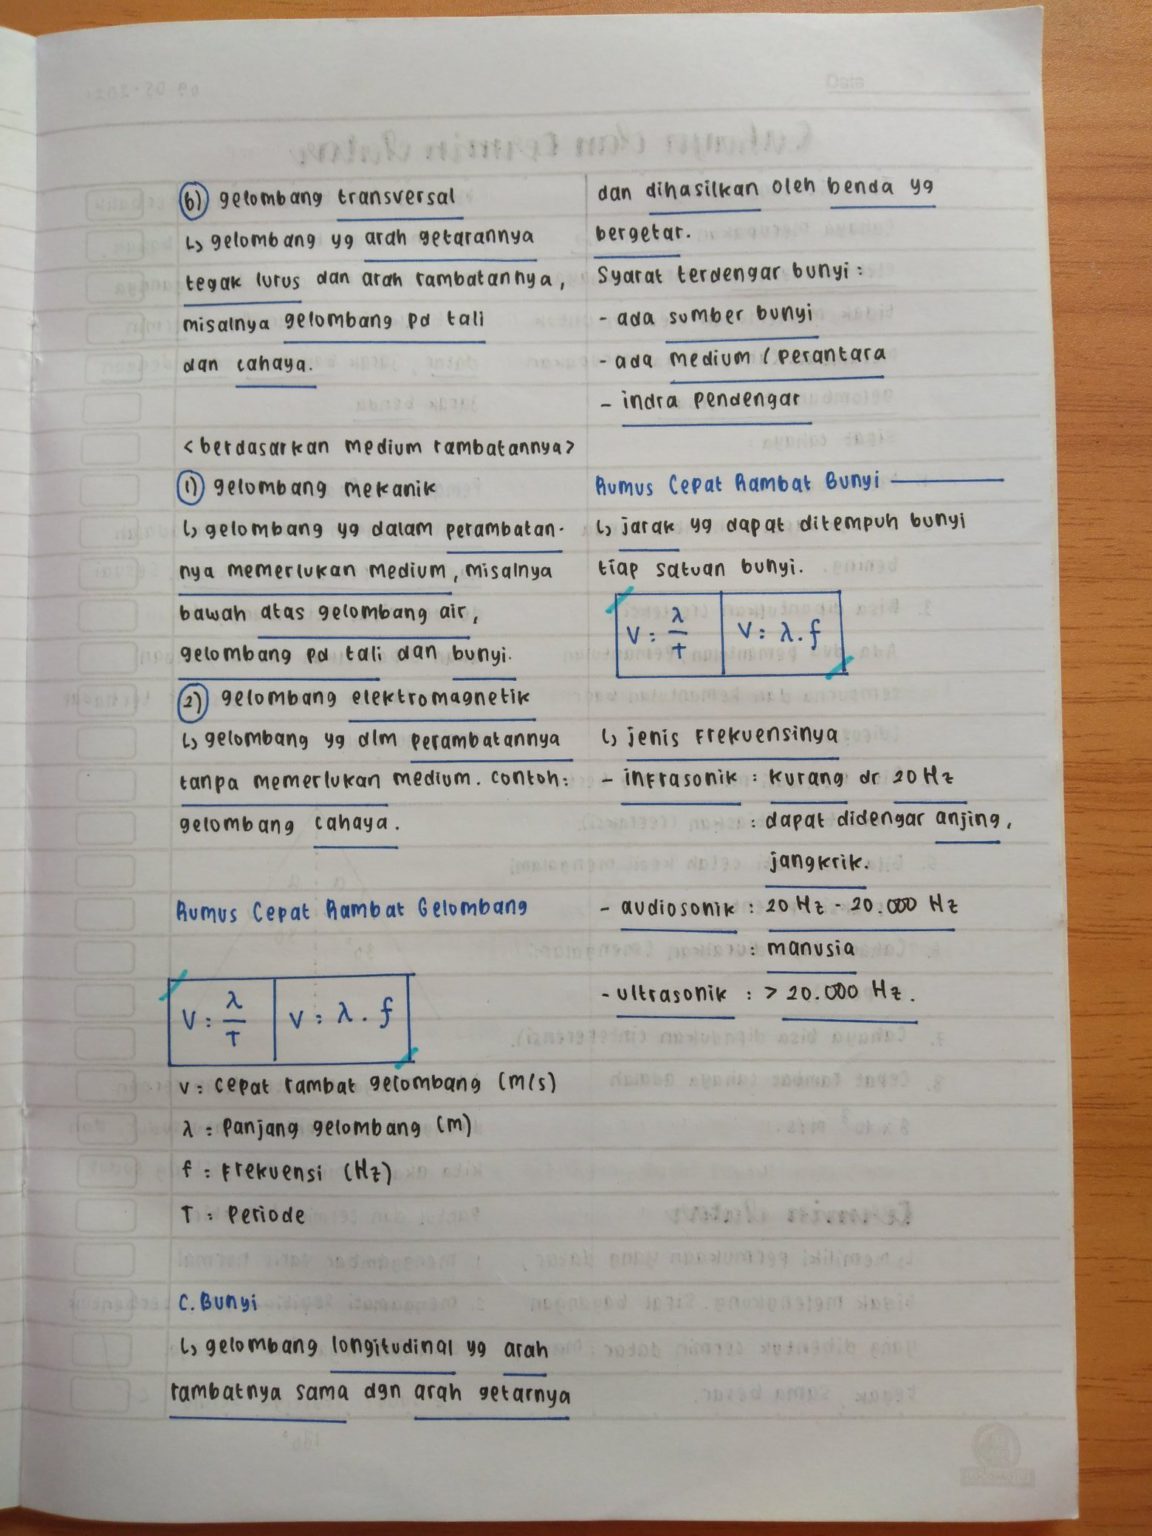 Date
6) gelombang transversal
↳ gelombang yg arah getarannya
tegak lurus dan arah rambatannya,
misalnya gelombang pd tali
dan cahaya.
<berdasarkan medium rambatannya>
1) gelombang mekanik
↳ gelombang yg dalam perambatan-
nya memerlukan medium, misalnya
bawah atas gelombang air,
gelombang pd tali dan bunyi.
2) gelombang elektromagnetik
↳ gelombang yg dlm perambatannya
tanpa memerlukan medium. contoh:
gelombang cahaya.
Rumus Cepat Rambat Gelombang
V = λ/T | V = λ . f
V = cepat rambat gelombang (m/s)
λ = Panjang gelombang (m)
f = Frekuensi (Hz)
T = Periode
C. Bunyi
↳ gelombang longitudinal yg arah
rambatnya sama dgn arah getarnya
dan dihasilkan oleh benda yg
bergetar.
Syarat terdengar bunyi :
- ada sumber bunyi
- ada medium / perantara
- indra pendengar
Rumus Cepat Rambat Bunyi
↳ jarak yg dapat ditempuh bunyi
tiap satuan bunyi.
V = λ/T | V = λ . f
↳ jenis Frekuensinya
- infrasonik : kurang dr 20 Hz
: dapat didengar anjing,
jangkrik.
- audiosonik : 20 Hz - 20.000 Hz
: manusia
- ultrasonik : > 20.000 Hz.